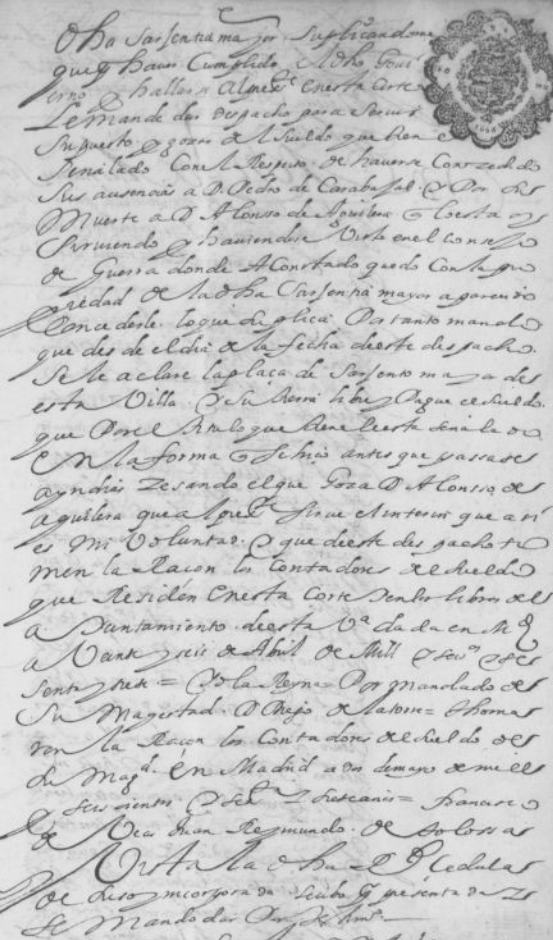 dha Sarjentia mayor suplicandome
que haver Cumplido dho Govi
erno y hallarse al press.te en esta Corte
le mande dar despacho para servir
su puesto y gozar del sueldo que tiene
Senalado Con el Respeto de haverse Conzedido
sus ausencias a D. Pedro de Carabajal y Por su
Muerte a D Alonso de Aguilera q lo esta
sirviendo y haviendose Visto en el consejo
de Guerra donde A Constado quedo Con la pro
piedad de la dha Sarjentia mayor a parecido
Concederle lo que suplica Por tanto mando
que desde el dia de la fecha deeste despacho
Se le aclare la plaça de Sarjento mayor des
esta Villa y se libre y Pague el sueldo
que Por el titulo que tiene leesta Senalado
en la forma q se hiço antes que passase
a yndias zesando el que Goza D Alonso de
aguilera que al press.te sirve el interin que asi
es Mi Voluntad y que deeste despacho to
men la Raçon los Contadores del sueldo
que Residen en esta Corte en los libros del
a Puntamiento deesta V.a dada en M.d
a Veinte y seis de Abril de Mill y seis.os y se
senta y siete = Yo la Reyna Por mandado de
Su Magestad D Diego de la torre = thoma
ron la Raçon los Contadores del sueldo de
su Mag.d en Madrid a dos de mayo de mill
y seiscientos y ses.ta y siete años = francisco
de Juan Reymundo de
Vista la dha R.l Cedula
de suso yncorporada q presentada
se Mando dar